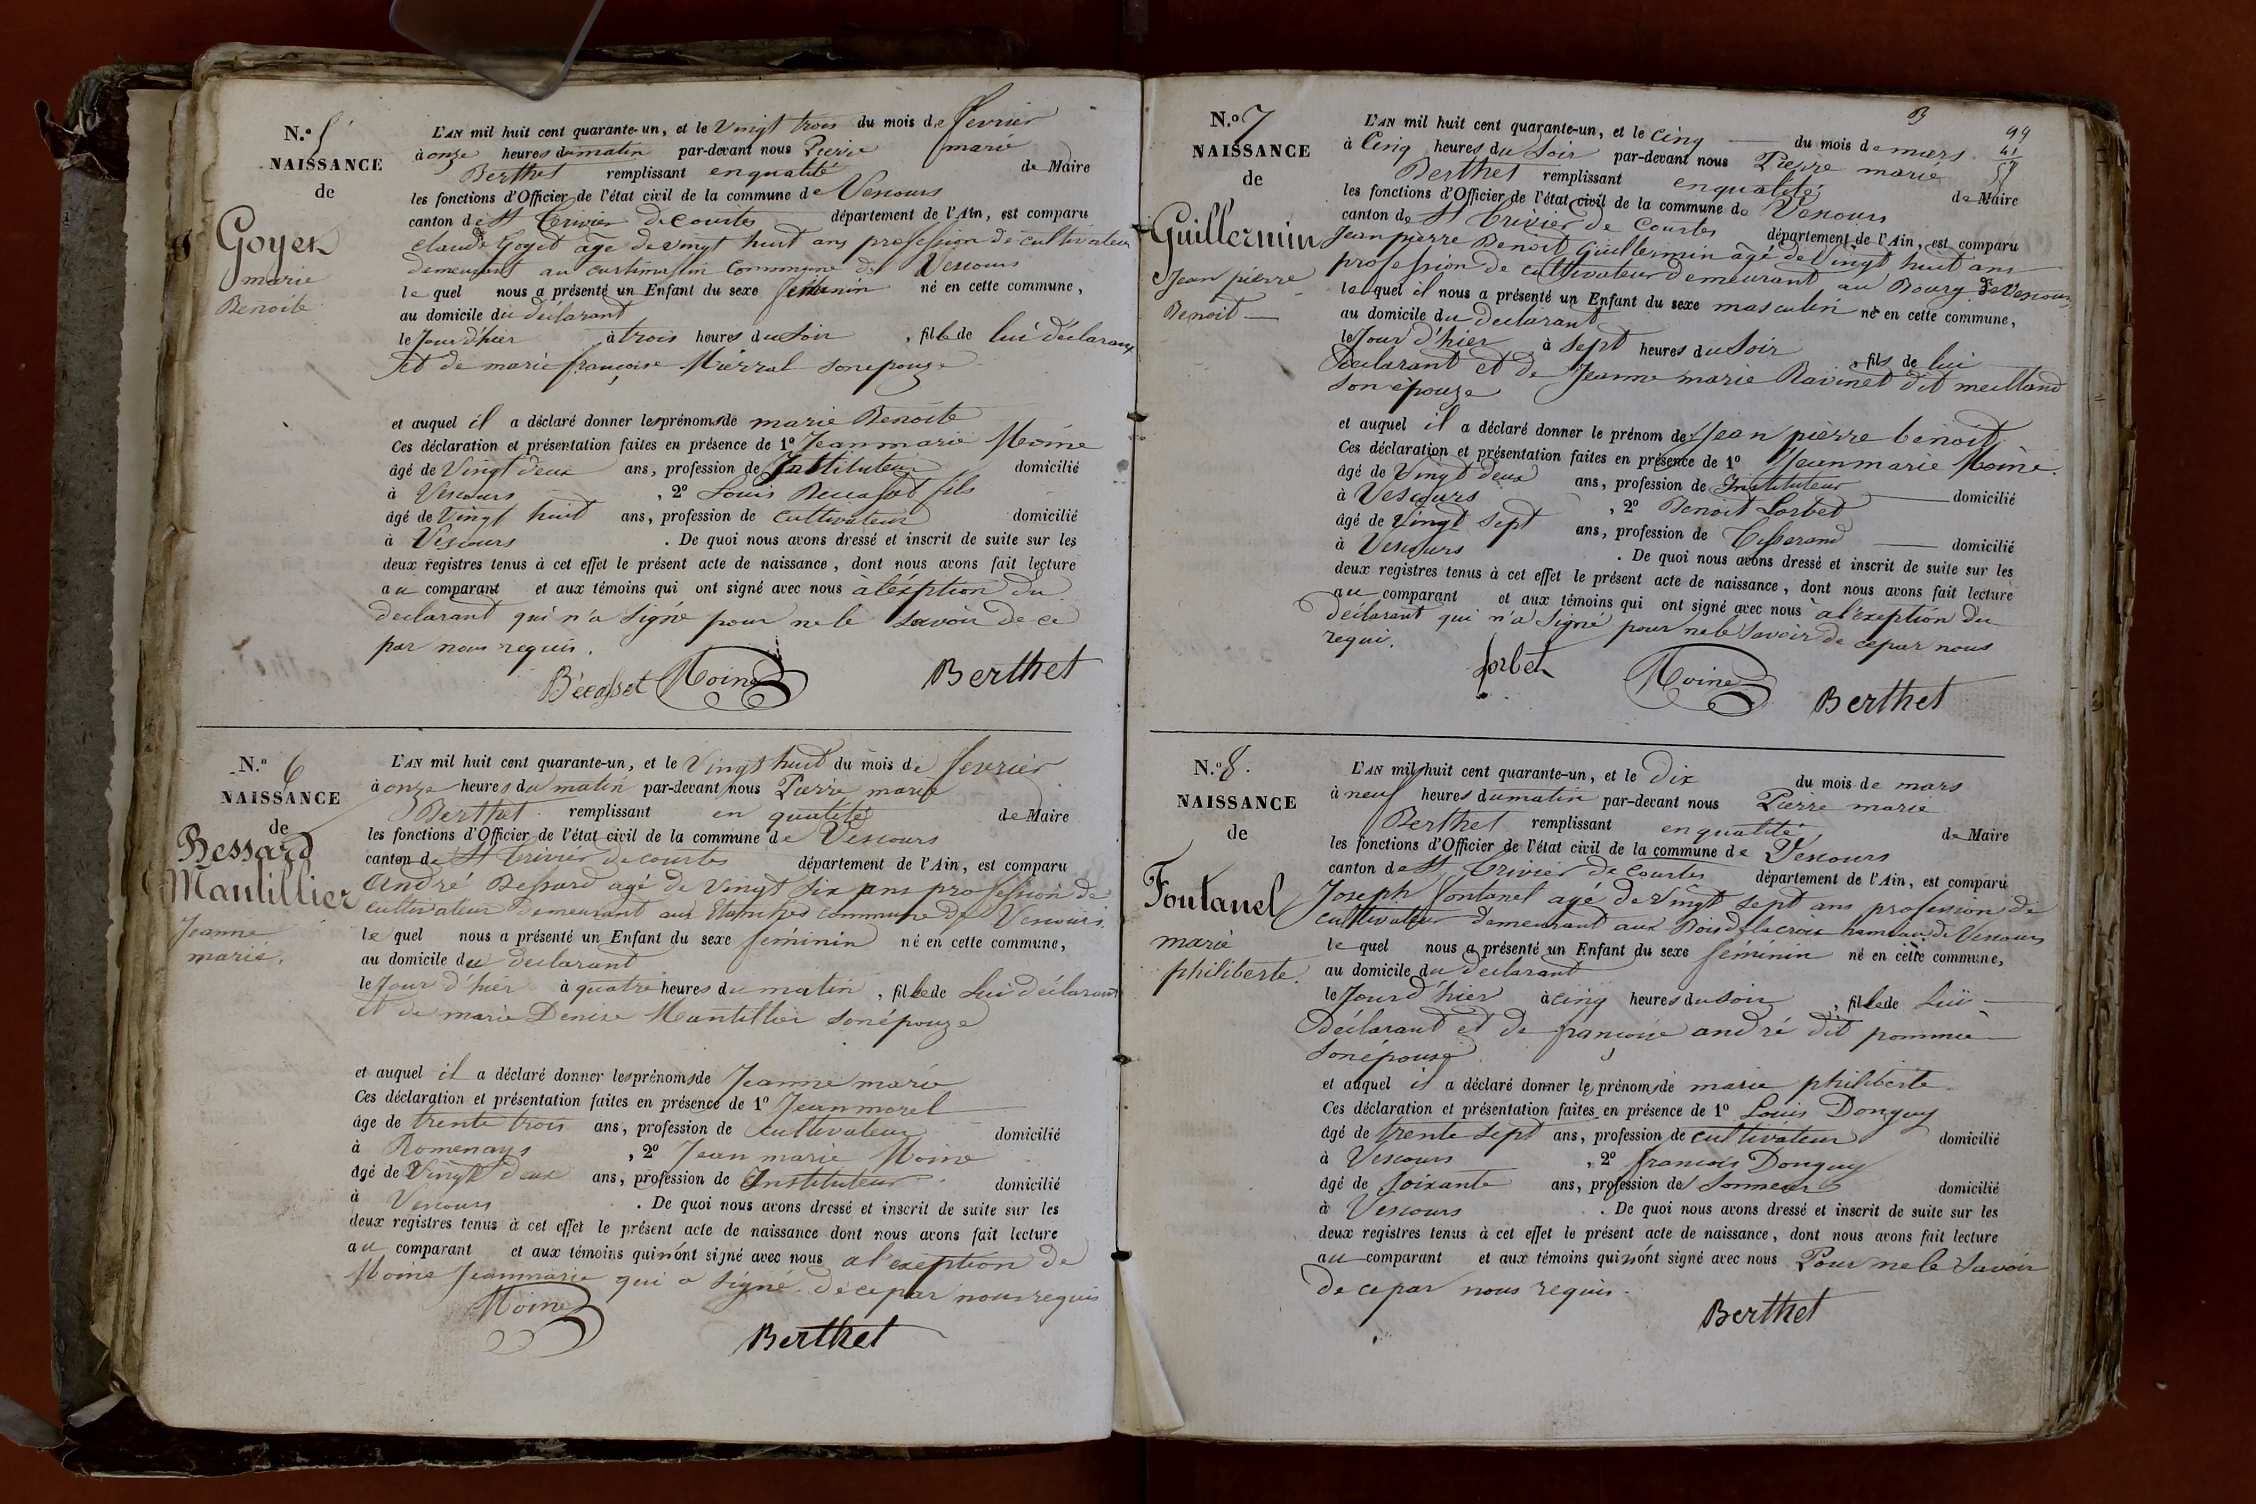 N.º 5
NAISSANCE
de
Goyet
marie
Benoite
L'AN mil huit cent quarante-un, et le vingt trois du mois de fevrier
à onze heures du matin par-devant nous Pierre marie
Berthet remplissant en qualité de Maire
les fonctions d'Officier de l'état civil de la commune de Vescours
canton de St Trivier de courtes département de l'Ain, est comparu
claude Goyet agé de vingt huit ans profession de cultivateur
demeurant au commune de Vescours
le quel nous a présenté un Enfant du sexe féminin né en cette commune,
au domicile du déclarant
le Jour d'hier à trois heures du Soir , fille de lui déclarant
et de marie françoise son épouze
et auquel il a déclaré donner les prénoms de marie Benoite
Ces déclaration et présentation faites en présence de 1º Jean marie Moine
âgé de Vingt deux ans, profession de Instituteur domicilié
à Vescours , 2º Louis Becasset fils
âgé de Vingt huit ans, profession de cultivateur domicilié
à Vescours . De quoi nous avons dressé et inscrit de suite sur les
deux registres tenus à cet effet le présent acte de naissance, dont nous avons fait lecture
au comparant et aux témoins qui ont signé avec nous à l'éxption du
declarant qui n'a signé pour ne le savoir de ce
par nous requis.
Bécasset Moine Berthet
N.º 6
NAISSANCE
de
Bessard
Mantillier
Jeanne
marie.
L'AN mil huit cent quarante-un, et le Vingt huit du mois de fevrier
à onze heures du matin par-devant nous Pierre marie
Berthet remplissant en qualité de Maire
les fonctions d'Officier de l'état civil de la commune de Vescours
canton de St Trivier de courtes département de l'Ain, est comparu
André Bessard agé de vingt six ans profession de
cultivateur demeurant aux commune de Vescours
le quel nous a présenté un Enfant du sexe féminin né en cette commune,
au domicile du declarant
le Jour d'hier à quatre heures du matin , fille de Lui déclarant
et de marie Denise Mantillier son épouze
et auquel il a déclaré donner les prénoms de Jeanne marie
Ces déclaration et présentation faites en présence de 1º Jean morel
âge de trente trois ans, profession de cultivateur domicilié
à Romenays , 2º Jean marie Moine
âgé de Vingt deux ans, profession de Instituteur domicilié
à Vescours . De quoi nous avons dressé et inscrit de suite sur les
deux registres tenus à cet effet le présent acte de naissance dont nous avons fait lecture
au comparant et aux témoins qui n'ont signé avec nous a l'exeption de
Moine Jeanmarie qui a signé de ce par nous requis
Moine
Berthet
N.º 7
NAISSANCE
de
Guillermin
Jean pierre
Benoit
L'AN mil huit cent quarante-un, et le cinq du mois de mars
à Cinq heures du Soir par-devant nous Pierre marie
Berthet remplissant en qualité de Maire
les fonctions d'Officier de l'état civil de la commune de Vescours
canton de St Trivier de Courtes département de l'Ain, est comparu
Jean pierre Benoit Guillermin agé de Vingt huit ans
profession de cultivateur demeurant au Bourg de Vescours
le quel il nous a présenté un Enfant du sexe masculin né en cette commune,
au domicile du declarant
le Jour d'hier à Sept heures du Soir , fils de lui
declarant et de Jeanne marie Ravinet dit meilland
son épouze
et auquel il a déclaré donner le prénom de Jean pierre benoit
Ces déclaration et présentation faites en présence de 1º Jeanmarie Moine.
âgé de Vingt deux ans, profession de Instituteur domicilié
à Vescours , 2º Benoit Lorbet
âgé de vingt sept ans, profession de Tisserand domicilié
à Vescours . De quoi nous avons dressé et inscrit de suite sur les
deux registres tenus à cet effet le présent acte de naissance, dont nous avons fait lecture
au comparant et aux témoins qui ont signé avec nous a l'exeption du
déclarant qui n'a signé pour ne le savoir de ce par nous
requi.
Lorbet Moine Berthet
N.º 8.
NAISSANCE
de
Fontanel
marie
philiberte.
L'AN mil huit cent quarante-un, et le dix du mois de mars
à neuf heures du matin par-devant nous Pierre marie
Berthet remplissant en qualité, de Maire
les fonctions d'Officier de l'état civil de la commune de Vescours
canton de St Trivier de Courtes département de l'Ain, est comparu
Joseph fontanel agé de vingt sept ans profession de
cultivateur demeurant aux Bois de la croix hameau de Vescours
le quel nous a présenté un Enfant du sexe féminin né en cette commune,
au domicile du declarant
le Jour d'hier à cinq heures du Soir , fille de Lui
déclarant et de françoise andré dit pommier
son épouse
et auquel il a déclaré donner le prénom de marie philiberte
Ces déclaration et présentation faites en présence de 1º Louis Donguy
âgé de trente sept ans, profession de cultivateur domicilié
à Vescours , 2º francois Donguy
âgé de soixante ans, profession de Sonneur domicilié
à Vescours . De quoi nous avons dressé et inscrit de suite sur les
deux registres tenus à cet effet le présent acte de naissance, dont nous avons fait lecture
au comparant et aux témoins qui n'ont signé avec nous Pour ne le Savoir
de ce par nous requis.
Berthet